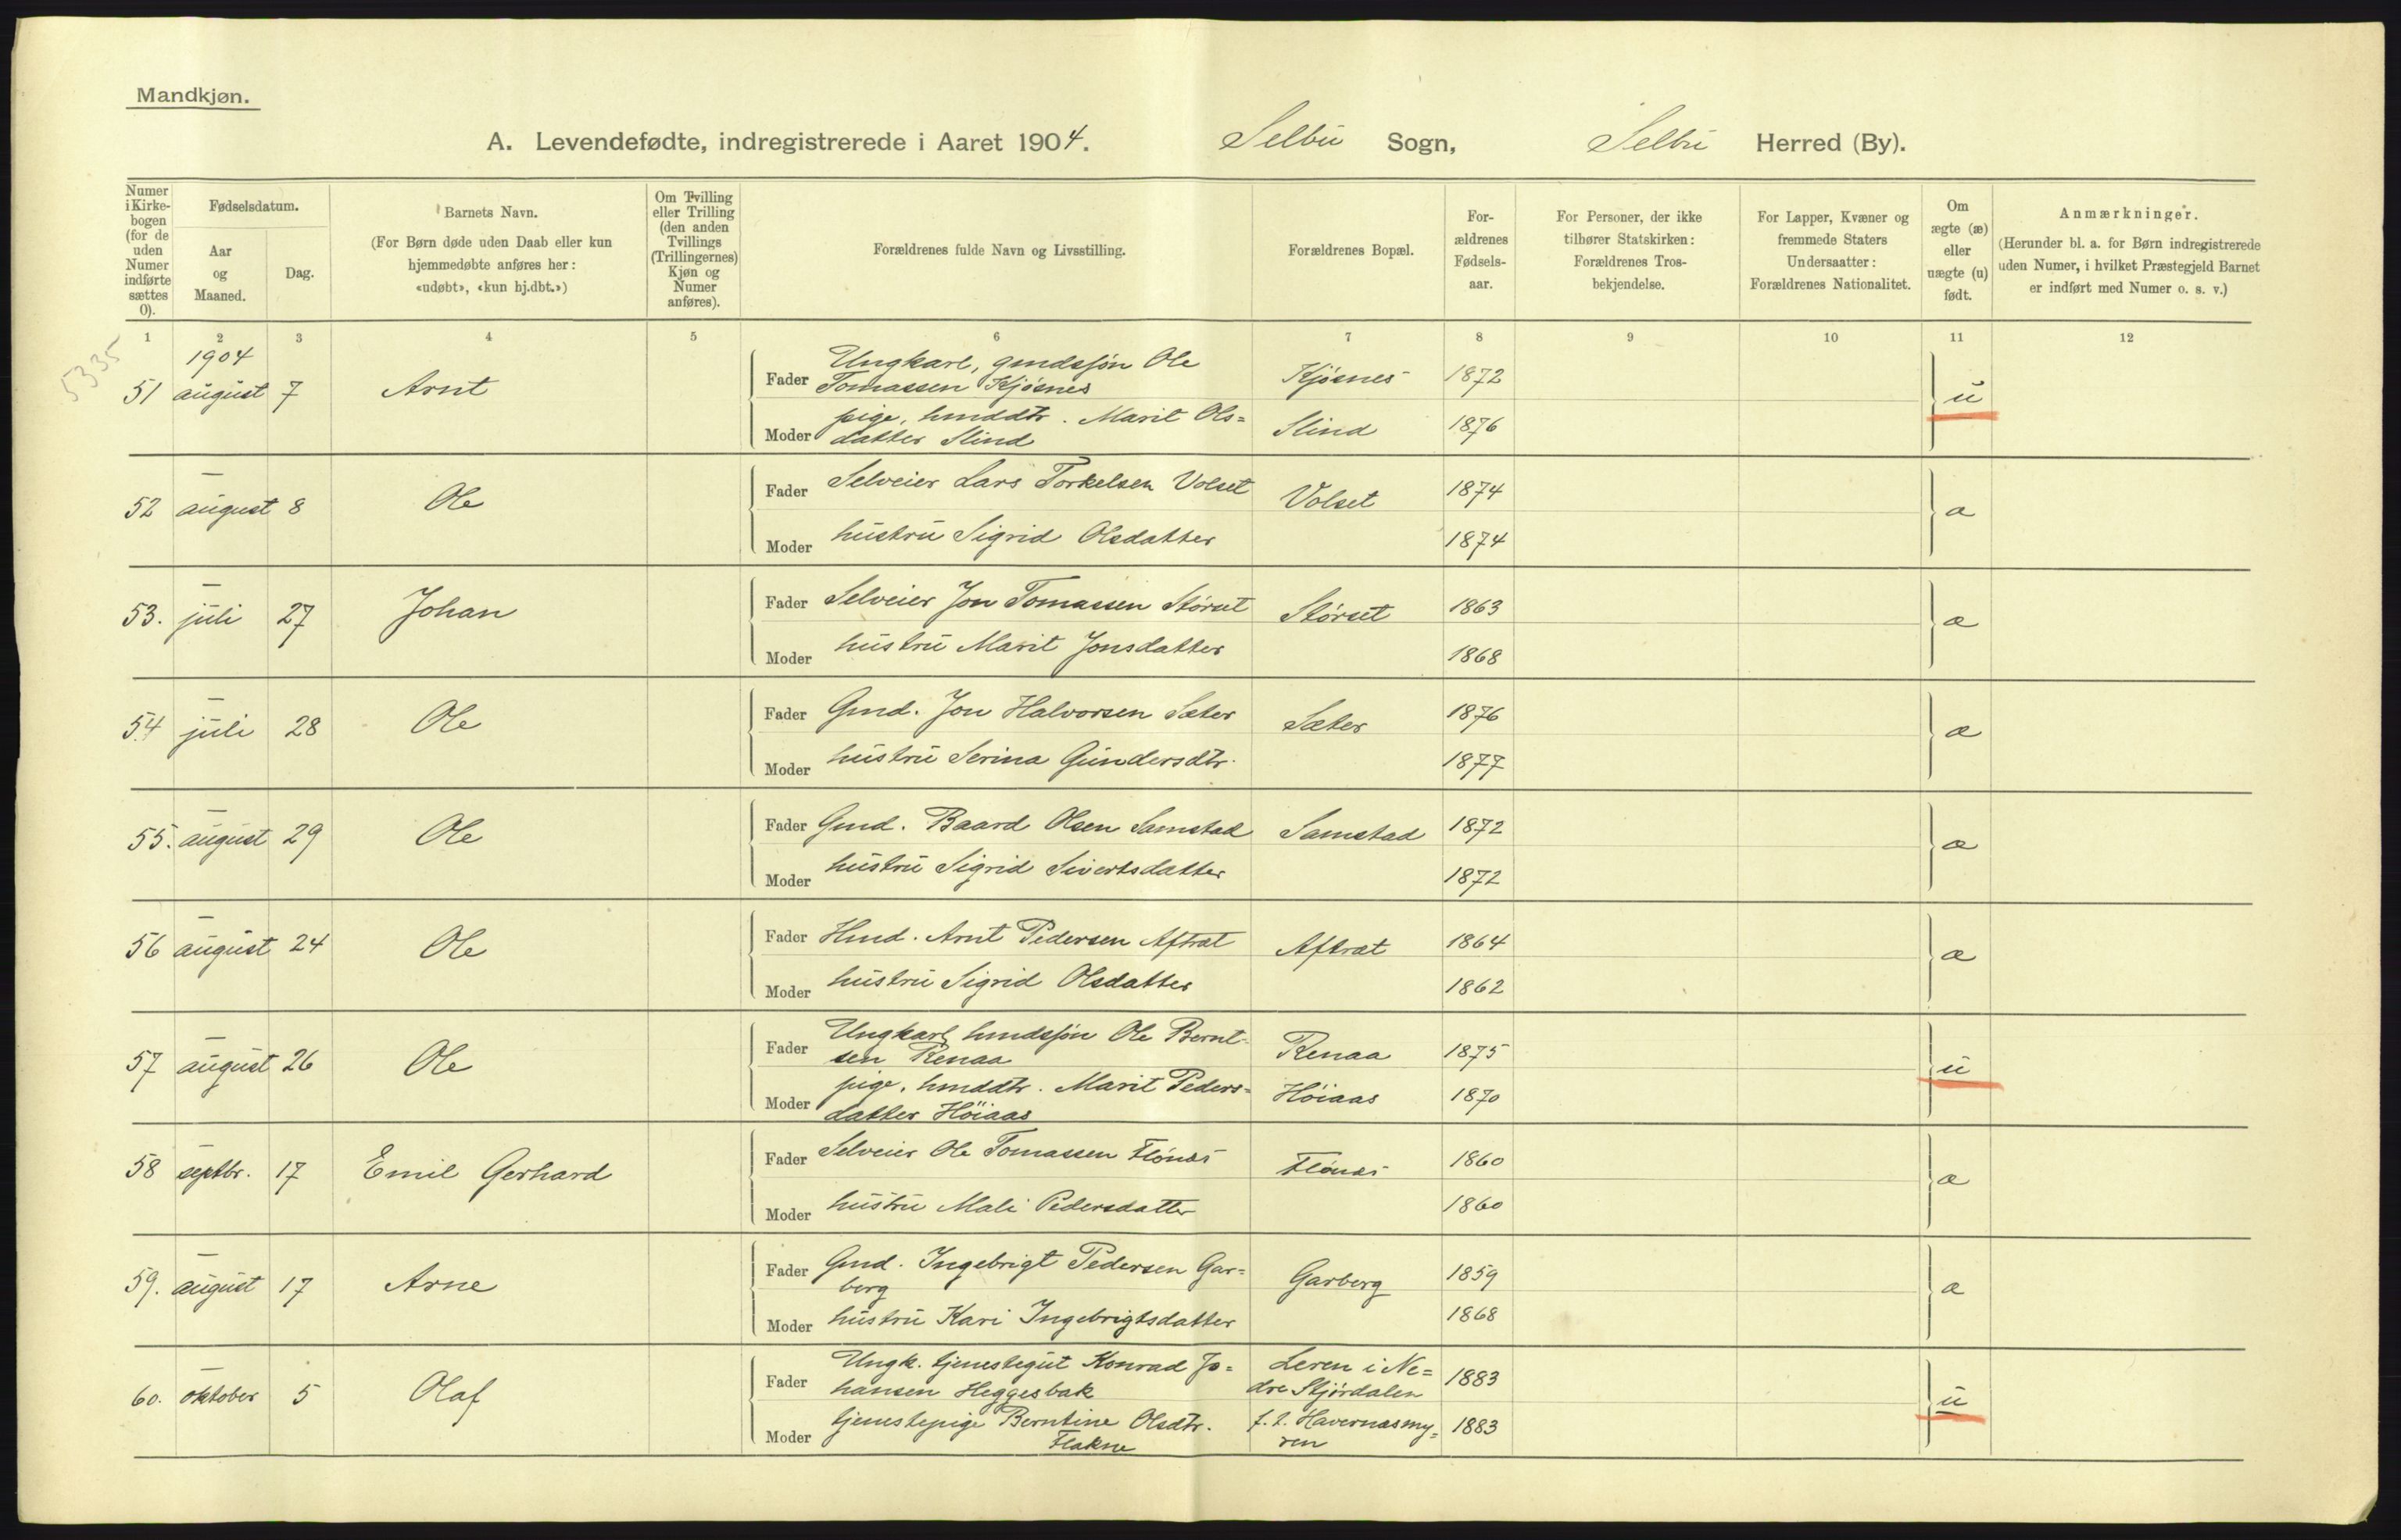 Mandkjøn.
A. Levendefødte, indregistrerede i Aaret 1904. Selbu Sogn, Selbu Herred (By).
Numer i Kirkebogen (for de uden Numer indførte sættes 0).
Fødselsdatum.
Aar og Maaned.
Dag.
Barnets Navn.
(For Børn døde uden Daab eller kun hjemmedøbte anføres her: «udøbt», «kun hj.dbt.»)
Om Tvilling eller Trilling (den anden Tvillings (Trillingernes) Kjøn og Numer anføres).
Forældrenes fulde Navn og Livsstilling.
Forældrenes Bopæl.
Forældrenes Fødselsaar.
For Personer, der ikke tilhører Statskirken: Forældrenes Trosbekjendelse.
For Lapper, Kvæner og fremmede Staters Undersaatter: Forældrenes Nationalitet.
Om ægte (æ) eller uægte (u) født.
Anmærkninger.
(Herunder bl. a. for Børn indregistrerede uden Numer, i hvilket Præstegjeld Barnet er indført med Numer o. s. v.)
1 2 3 4 5 6 7 8 9 10 11 12
5335
1904
51 august 7 Arnt
Fader Ungkarl, gmdssøn Ole
Tomassen Kjøsnes Kjøsnes 1872 u
Moder pige, hmddtr. Marit Ols=
datter Slind Slind 1876
52 — august 8 Ole
Fader Selveier Lars Torkelsen Volset Volset 1874 æ
Moder hustru Sigrid Olsdatter 1874
53. — juli 27 Johan
Fader Selveier Jon Tomassen Størset Størset 1863 æ
Moder hustru Marit Jonsdatter 1868
54 — juli 28 Ole
Fader Gmd. Jon Halvorsen Sæter Sæter 1876 æ
Moder hustru Serina Gundersdtr. 1877
55. — august 29 Ole
Fader Gmd. Baard Olsen Samstad Samstad 1872 æ
Moder hustru Sigrid Sivertsdatter 1872
56 — august 24 Ole
Fader Hmd. Arnt Pedersen Aftræt Aftræt 1864 æ
Moder hustru Sigrid Olsdatter 1862
57 — august 26 Ole
Fader Ungkarl, hmdssøn Ole Bernt-
sen Renaa Renaa 1875 u
Moder pige, hmddtr. Marit Peders=
datter Höiaas Höiaas 1870
58 — septbr. 17 Emil Gerhard
Fader Selveier Ole Tomassen Flönæs Flönæs 1860 æ
Moder hustru Mali Pedersdatter 1860
59. — august 17 Arne
Fader Gmd. Ingebrigt Pedersen Gar=
berg Garberg 1859 æ
Moder hustru Kari Ingebrigtsdatter 1868
60. — oktober 5 Olaf
Fader Ungk. tjenestegut Konrad Jo= Leren i Ne=
hansen Heggesbak dre Stjørdalen 1883 u
Moder tjenestepige Berntine Olsdtr. f. t. Havernasmy=
Flakne ren 1883